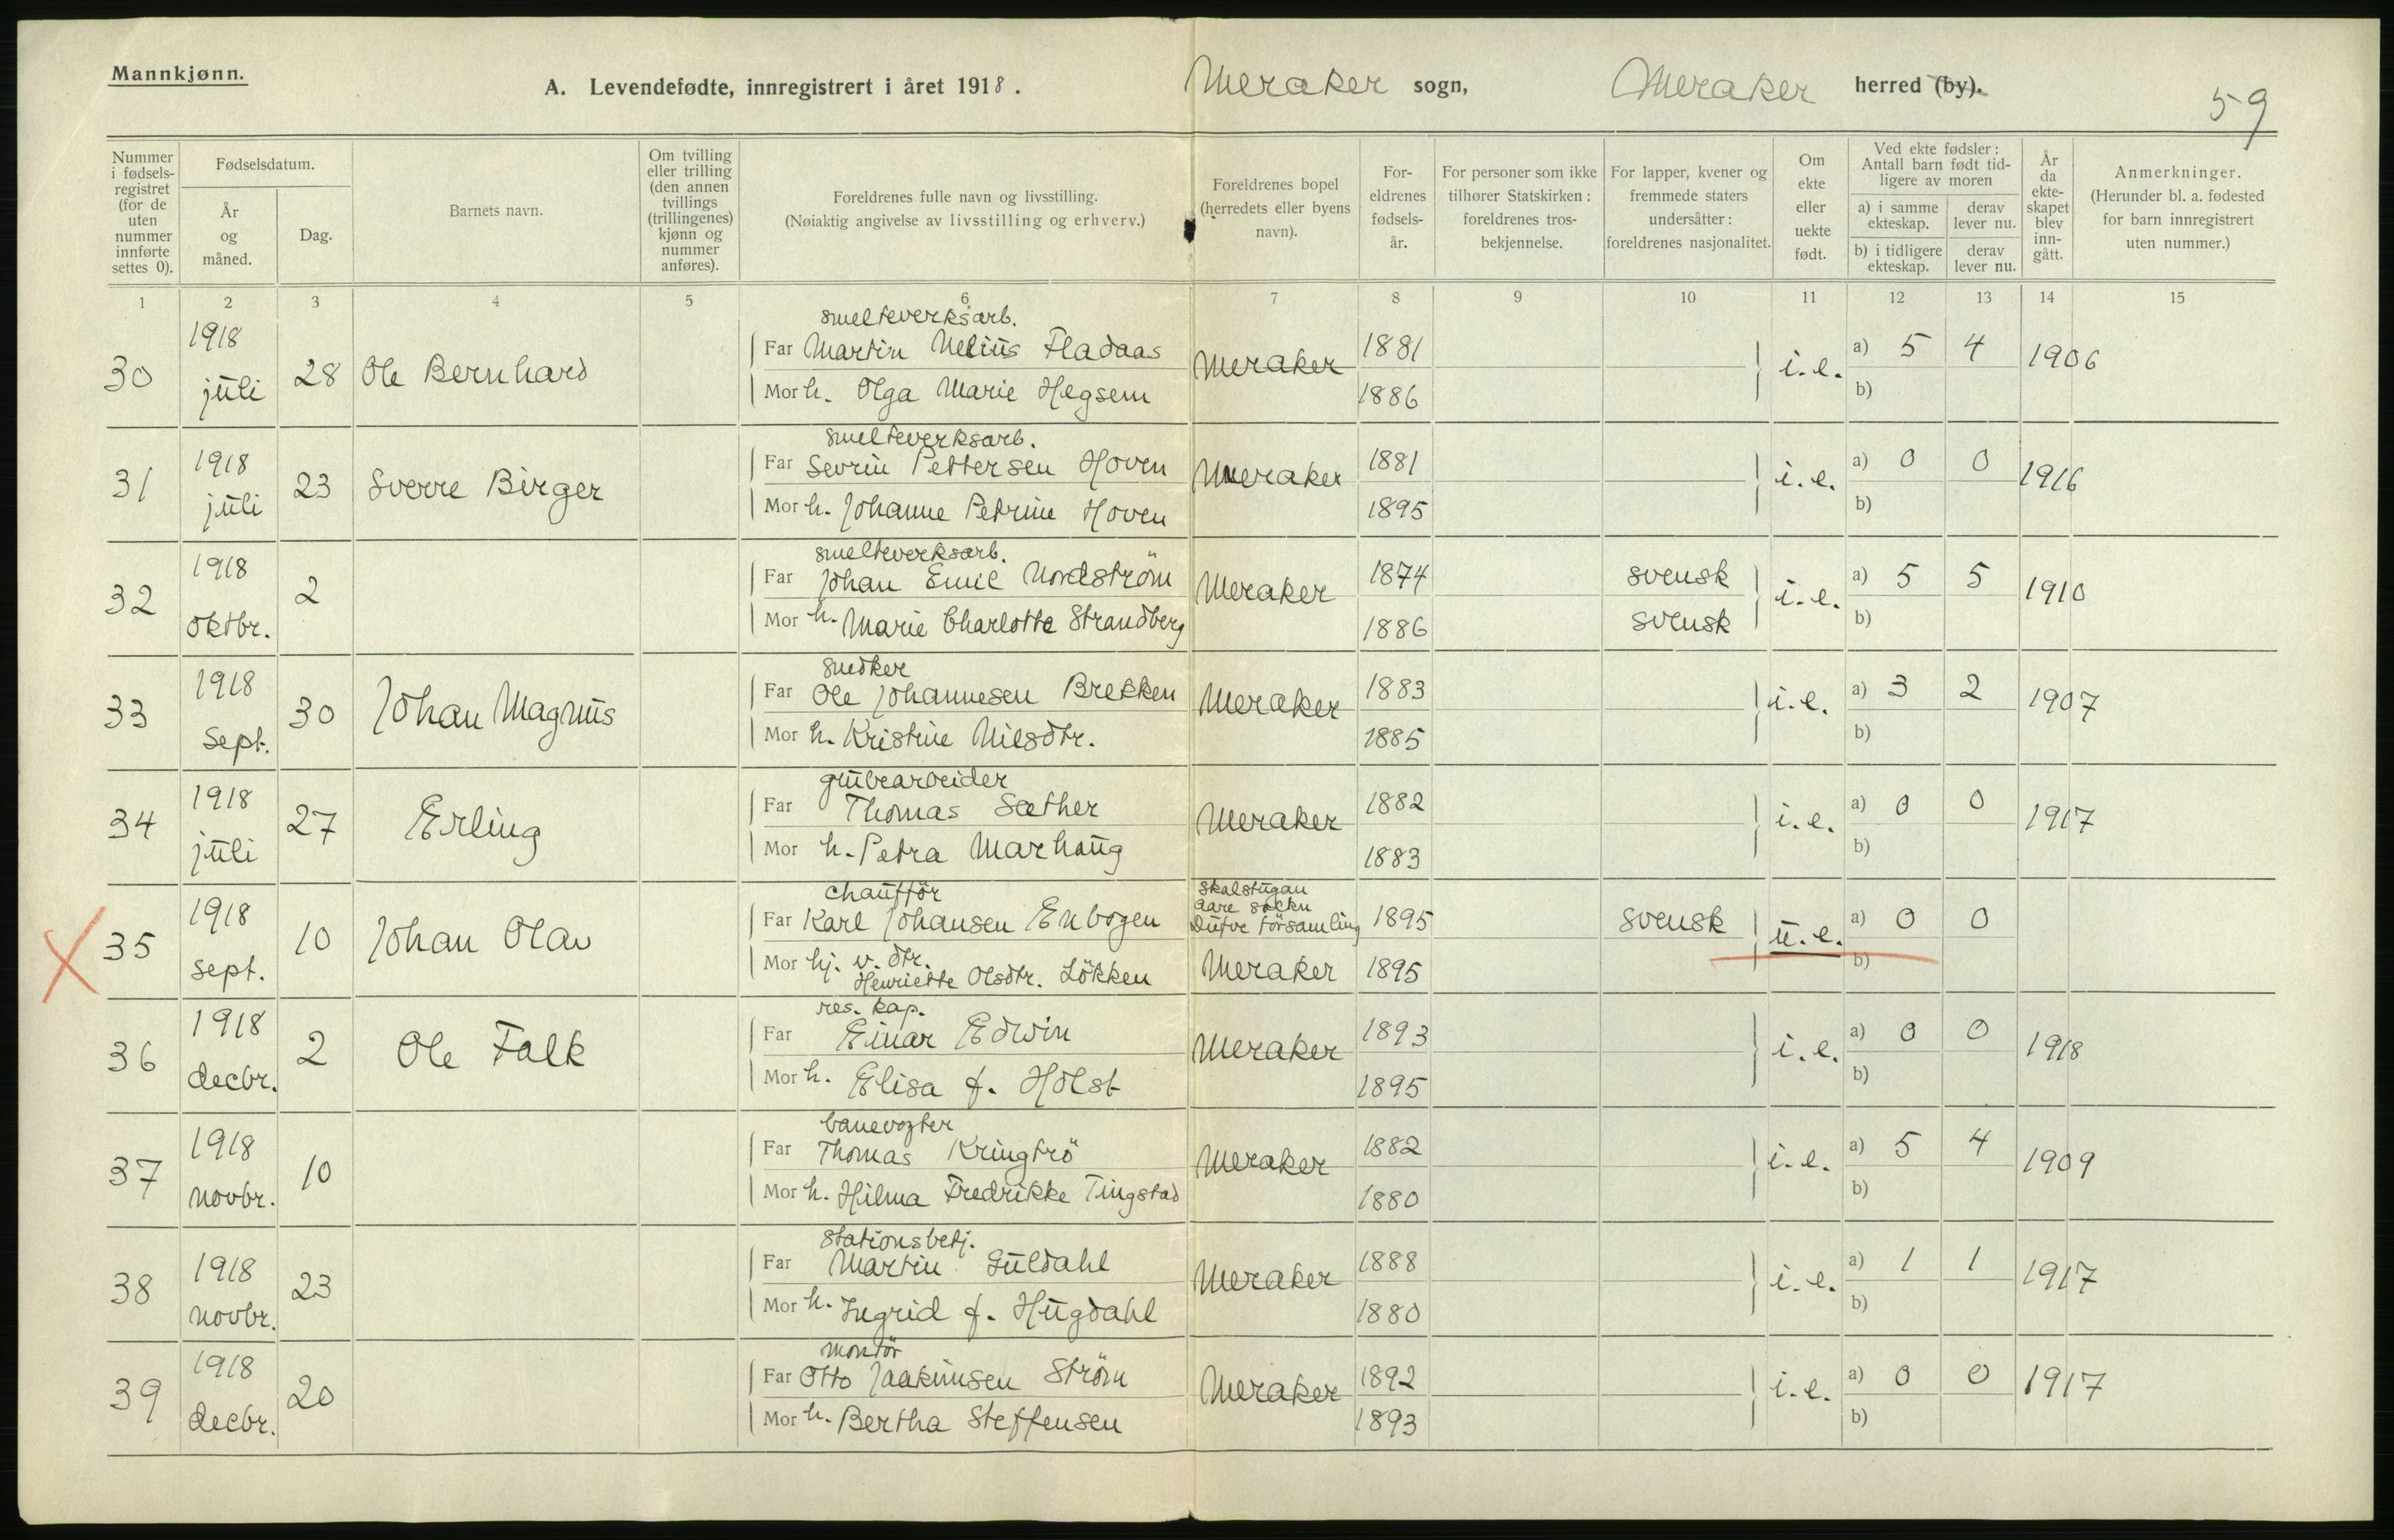 Mannkjønn.
A. Levendefødte, innregistrert i året 1918. Meraker sogn, Meraker herred (by).
59
Nummer i fødselsregistret (for de uten nummer innførte settes 0).
Fødselsdatum.
År og måned.
Dag.
Barnets navn.
Om tvilling eller trilling (den annen tvillings (trillingenes) kjønn og nummer anføres).
Foreldrenes fulle navn og livsstilling.
(Nøiaktig angivelse av livsstilling og erhverv.)
Foreldrenes bopel (herredets eller byens navn).
Foreldrenes fødselsår.
For personer som ikke tilhører Statskirken: foreldrenes trosbekjennelse.
For lapper, kvener og fremmede staters undersåtter: foreldrenes nasjonalitet.
Om ekte eller uekte født.
Ved ekte fødsler: Antall barn født tidligere av moren
a) i samme ekteskap.
derav lever nu.
b) i tidligere ekteskap.
derav lever nu.
År da ekteskapet blev inngått.
Anmerkninger.
(Herunder bl. a. fødested for barn innregistrert uten nummer.)
1 2 3 4 5 6 7 8 9 10 11 12 13 14 15
smelteverksarb.
30 1918 juli 28 Ole Bernhard Far Martin Melius Fladaas Meraker 1881 i.e. a) 5 4 1906
Mor h. Olga Marie Hegsem 1886 b)
smelteverksarb.
31 1918 juli 23 Sverre Birger Far Sevrin Pettersen Hoven Meraker 1881 i.e. a) 0 0 1916
Mor h. Johanne Petrine Hoven 1895 b)
smelteverksarb.
32 1918 oktbr. 2 Far Johan Emil Nordström Meraker 1874 svensk i.e. a) 5 5 1910
Mor h. Marie Charlotte Strandberg 1886 svensk b)
snedker
33 1918 sept. 30 Johan Magnus Far Ole Johannesen Brekken Meraker 1883 i.e. a) 3 2 1907
Mor h. Kristine Nilsdtr. 1885 b)
grubearbeider
34 1918 juli 27 Erling Far Thomas Sæther Meraker 1882 i.e. a) 0 0 1917
Mor h. Petra Marhaug 1883 b)
chaufför
35 1918 sept. 10 Johan Olav Far Karl Johansen Enbogen Skalstugan Aare sockn Dufve församling 1895 svensk u.e. a) 0 0
Mor hj. v. dtr. Henriette Olsdtr. Lökken Meraker 1895 b)
res. kap.
36 1918 decbr. 2 Ole Falk Far Einar Edwin Meraker 1893 i.e. a) 0 0 1918
Mor h. Elisa f. Holst 1895 b)
banevogter
37 1918 novbr. 10 Far Thomas Kringtrö Meraker 1882 i.e. a) 5 4 1909
Mor h. Hilma Fredrikke Tingstad 1880 b)
stationsbetj.
38 1918 novbr. 23 Far Martin Guldahl Meraker 1888 i.e. a) 1 1 1917
Mor h. Ingrid f. Hugdahl 1880 b)
montör
39 1918 decbr. 20 Far Otto Jaakimsen Ström Meraker 1892 i.e. a) 0 0 1917
Mor h. Bertha Steffensen 1893 b)